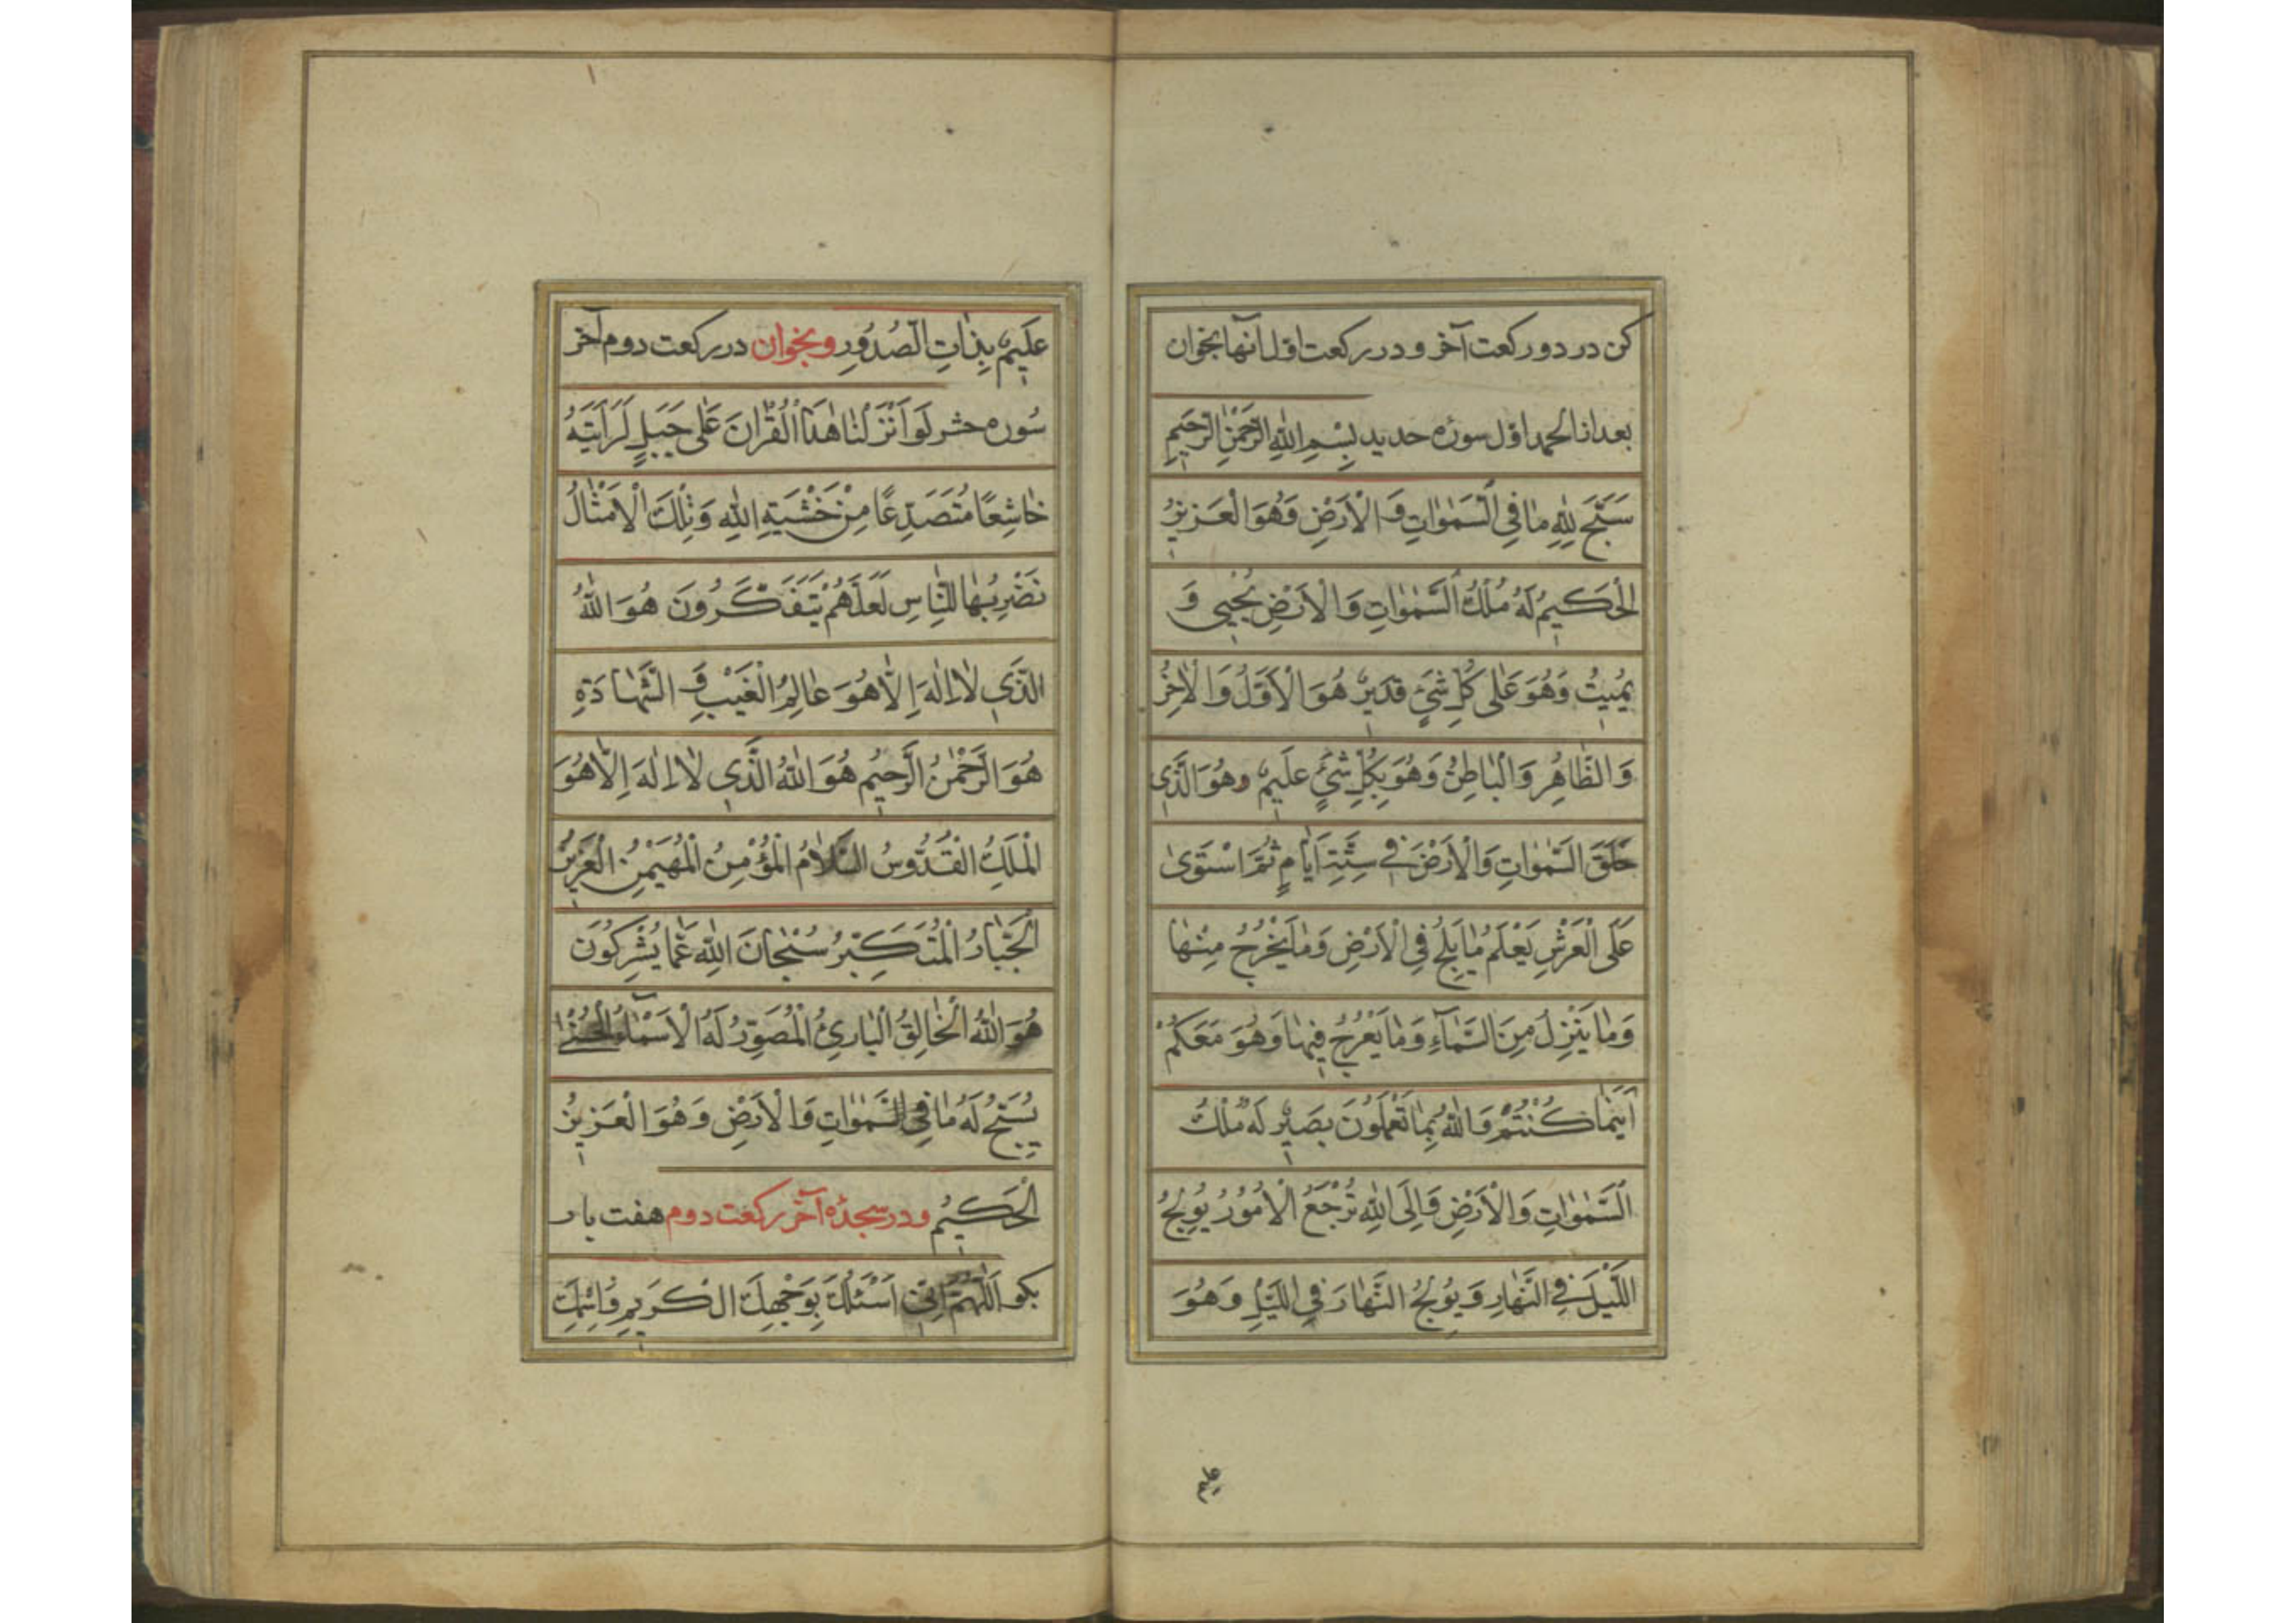 کن در دو رکعت آخر و در رکعت اول آنها بخوان
بعد از الحمد اول سوره حدید بِسْمِ اللهِ الرَّحْمٰنِ الرَّحیمِ
سَبَّحَ لِلّٰهِ مٰا فِی السَّمٰوٰاتِ وَ الْاَرْضِ وَهُوَ الْعَزیزُ
الْحَکیمُ لَهُ مُلْكُ السَّمٰوٰاتِ وَالْاَرْضِ یُحْیی وَ
یُمیتُ وَهُوَ عَلٰی کُلِّ شَیْءٍ قَدیرٌ هُوَ الْاَوَّلُ وَالْاٰخِرُ
وَالظّٰاهِرُ وَالْبٰاطِنُ وَهُوَ بِکُلِّ شَیْءٍ عَلیمٌ وهُوَ الَّذی
خَلَقَ السَّمٰوٰاتِ وَالْاَرْضَ فی سِتَّةِ اَیّٰامٍ ثُمَّ اسْتَوٰی
عَلَی الْعَرْشِ یَعْلَمُ مٰا یَلِجُ فِی الْاَرْضِ وَمٰا یَخْرُجُ مِنْهٰا
وَمٰا یَنْزِلُ مِنَ السَّمٰآءِ وَمٰا یَعْرُجُ فیهٰا وَهُوَ مَعَکُمْ
اَیْنَمٰا کُنْتُمْ وَاللهُ بِمٰا تَعْمَلُونَ بَصیرٌ لَهُ مُلْكُ
السَّمٰوٰاتِ وَالْاَرْضِ وَاِلَی اللهِ تُرْجَعُ الْاُمُورُ یُولِجُ
اللَّیْلَ فِی النَّهٰارِ وَ یُولِجُ النَّهٰارَ فِی اللَّیْلِ وَهُوَ
علیم
عَلیمٌ بِذٰاتِ الصُّدُورِ و بخوان در رکعت دوم آخر
سُوره حشر لَوْ اَنْزَلْنٰا هٰذَا الْقُرْاٰنَ عَلٰی جَبَلٍ لَرَاَیْتَهُ
خٰاشِعًا مُتَصَدِّعًا مِنْ خَشْیَةِ اللهِ وَ تِلْكَ الْاَمْثٰالُ
نَضْرِبُهٰا لِلنّٰاسِ لَعَلَّهُمْ یَتَفَکَّرُونَ هُوَ اللهُ
الَّذی لٰا اِلٰهَ اِلّٰا هُوَ عٰالِمُ الْغَیْبِ وَ الشَّهٰادَةِ
هُوَ الرَّحْمٰنُ الرَّحیمُ هُوَ اللهُ الَّذی لٰا اِلٰهَ اِلّٰا هُوَ
الْمَلِكُ الْقُدُّوسُ السَّلٰامُ الْمُؤْمِنُ الْمُهَیْمِنُ الْعَزیزُ
الْجَبّٰارُ الْمُتَکَبِّرُ سُبْحٰانَ اللهِ عَمّٰا یُشْرِکُونَ
هُوَ اللهُ الْخٰالِقُ الْبٰارِئُ الْمُصَوِّرُ لَهُ الْاَسْمٰآءُ الْحُسْنٰی
یُسَبِّحُ لَهُ مٰا فِی السَّمٰوٰاتِ وَ الْاَرْضِ وَهُوَ الْعَزیزُ
الْحَکیمُ و در سجدهٔ آخر رکعت دوم هفت بار
بکو اَللّٰهُمَّ اِنّی اَسْئَلُكَ بِوَجْهِكَ الْکَریمِ وَاسْمِكَ